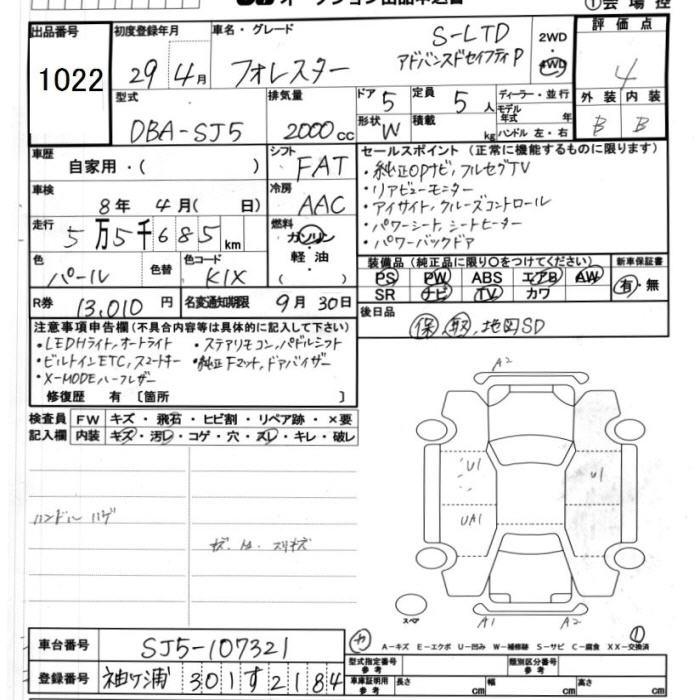 オークション出品申込書
①会場控
出品番号 初度登録年月 車名・グレード 評価点
1022 29年4月 フォレスター S-LTD アドバンスドセイフティP 2WD・4WD 4
型式 排気量 ドア 5 定員 5人 ディーラー・並行 外装 内装
DBA-SJ5 2000cc 形状 W 積載 kg モデル年式 年 ハンドル 左・右 B B
車歴 自家用・( ) シフト FAT
セールスポイント (正常に機能するものに限ります)
・純正OPナビ,フルセグTV
・リアビューモニター
・アイサイト,クルーズコントロール
・パワーシート,シートヒーター
・パワーバックドア
車検 8年 4月( 日) 冷房 AAC
走行 5万5千685km 燃料 ガソリン・軽油・( )
色 パール 色替 色コード K1X
装備品 (純正品に限り○をつけてください) 新車保証書
PS PW ABS エアB AW 有・無
SR ナビ TV カワ
R券 13,010円 名変通知期限 9月30日
後日品 保,取,地図SD
注意事項申告欄(不具合内容等は具体的に記入して下さい)
・LEDHライト,オートライト ・ステアリモコン,パドルシフト
・ビルトインETC,スマートキー ・純正Fマット,ドアバイザー
・X-MODE,ハーフレザー
修復歴 有 [箇所 ]
検査員記入欄 FW キズ・飛石・ヒビ割・リペア跡・×要
内装 キズ・汚レ・コゲ・穴・スレ・キレ・破レ
ハンドル ハゲ
A2
U1 U1
UA1
スペア A1 A2
車台番号 SJ5-107321
A-キズ E-エクボ U-凹み W-補修跡 S-サビ C-腐食 XX-交換済
登録番号 袖ヶ浦 301す2184
型式指定番号 参考 類別区分番号 参考
車庫証明用参考 長さ cm 幅 cm 高さ cm